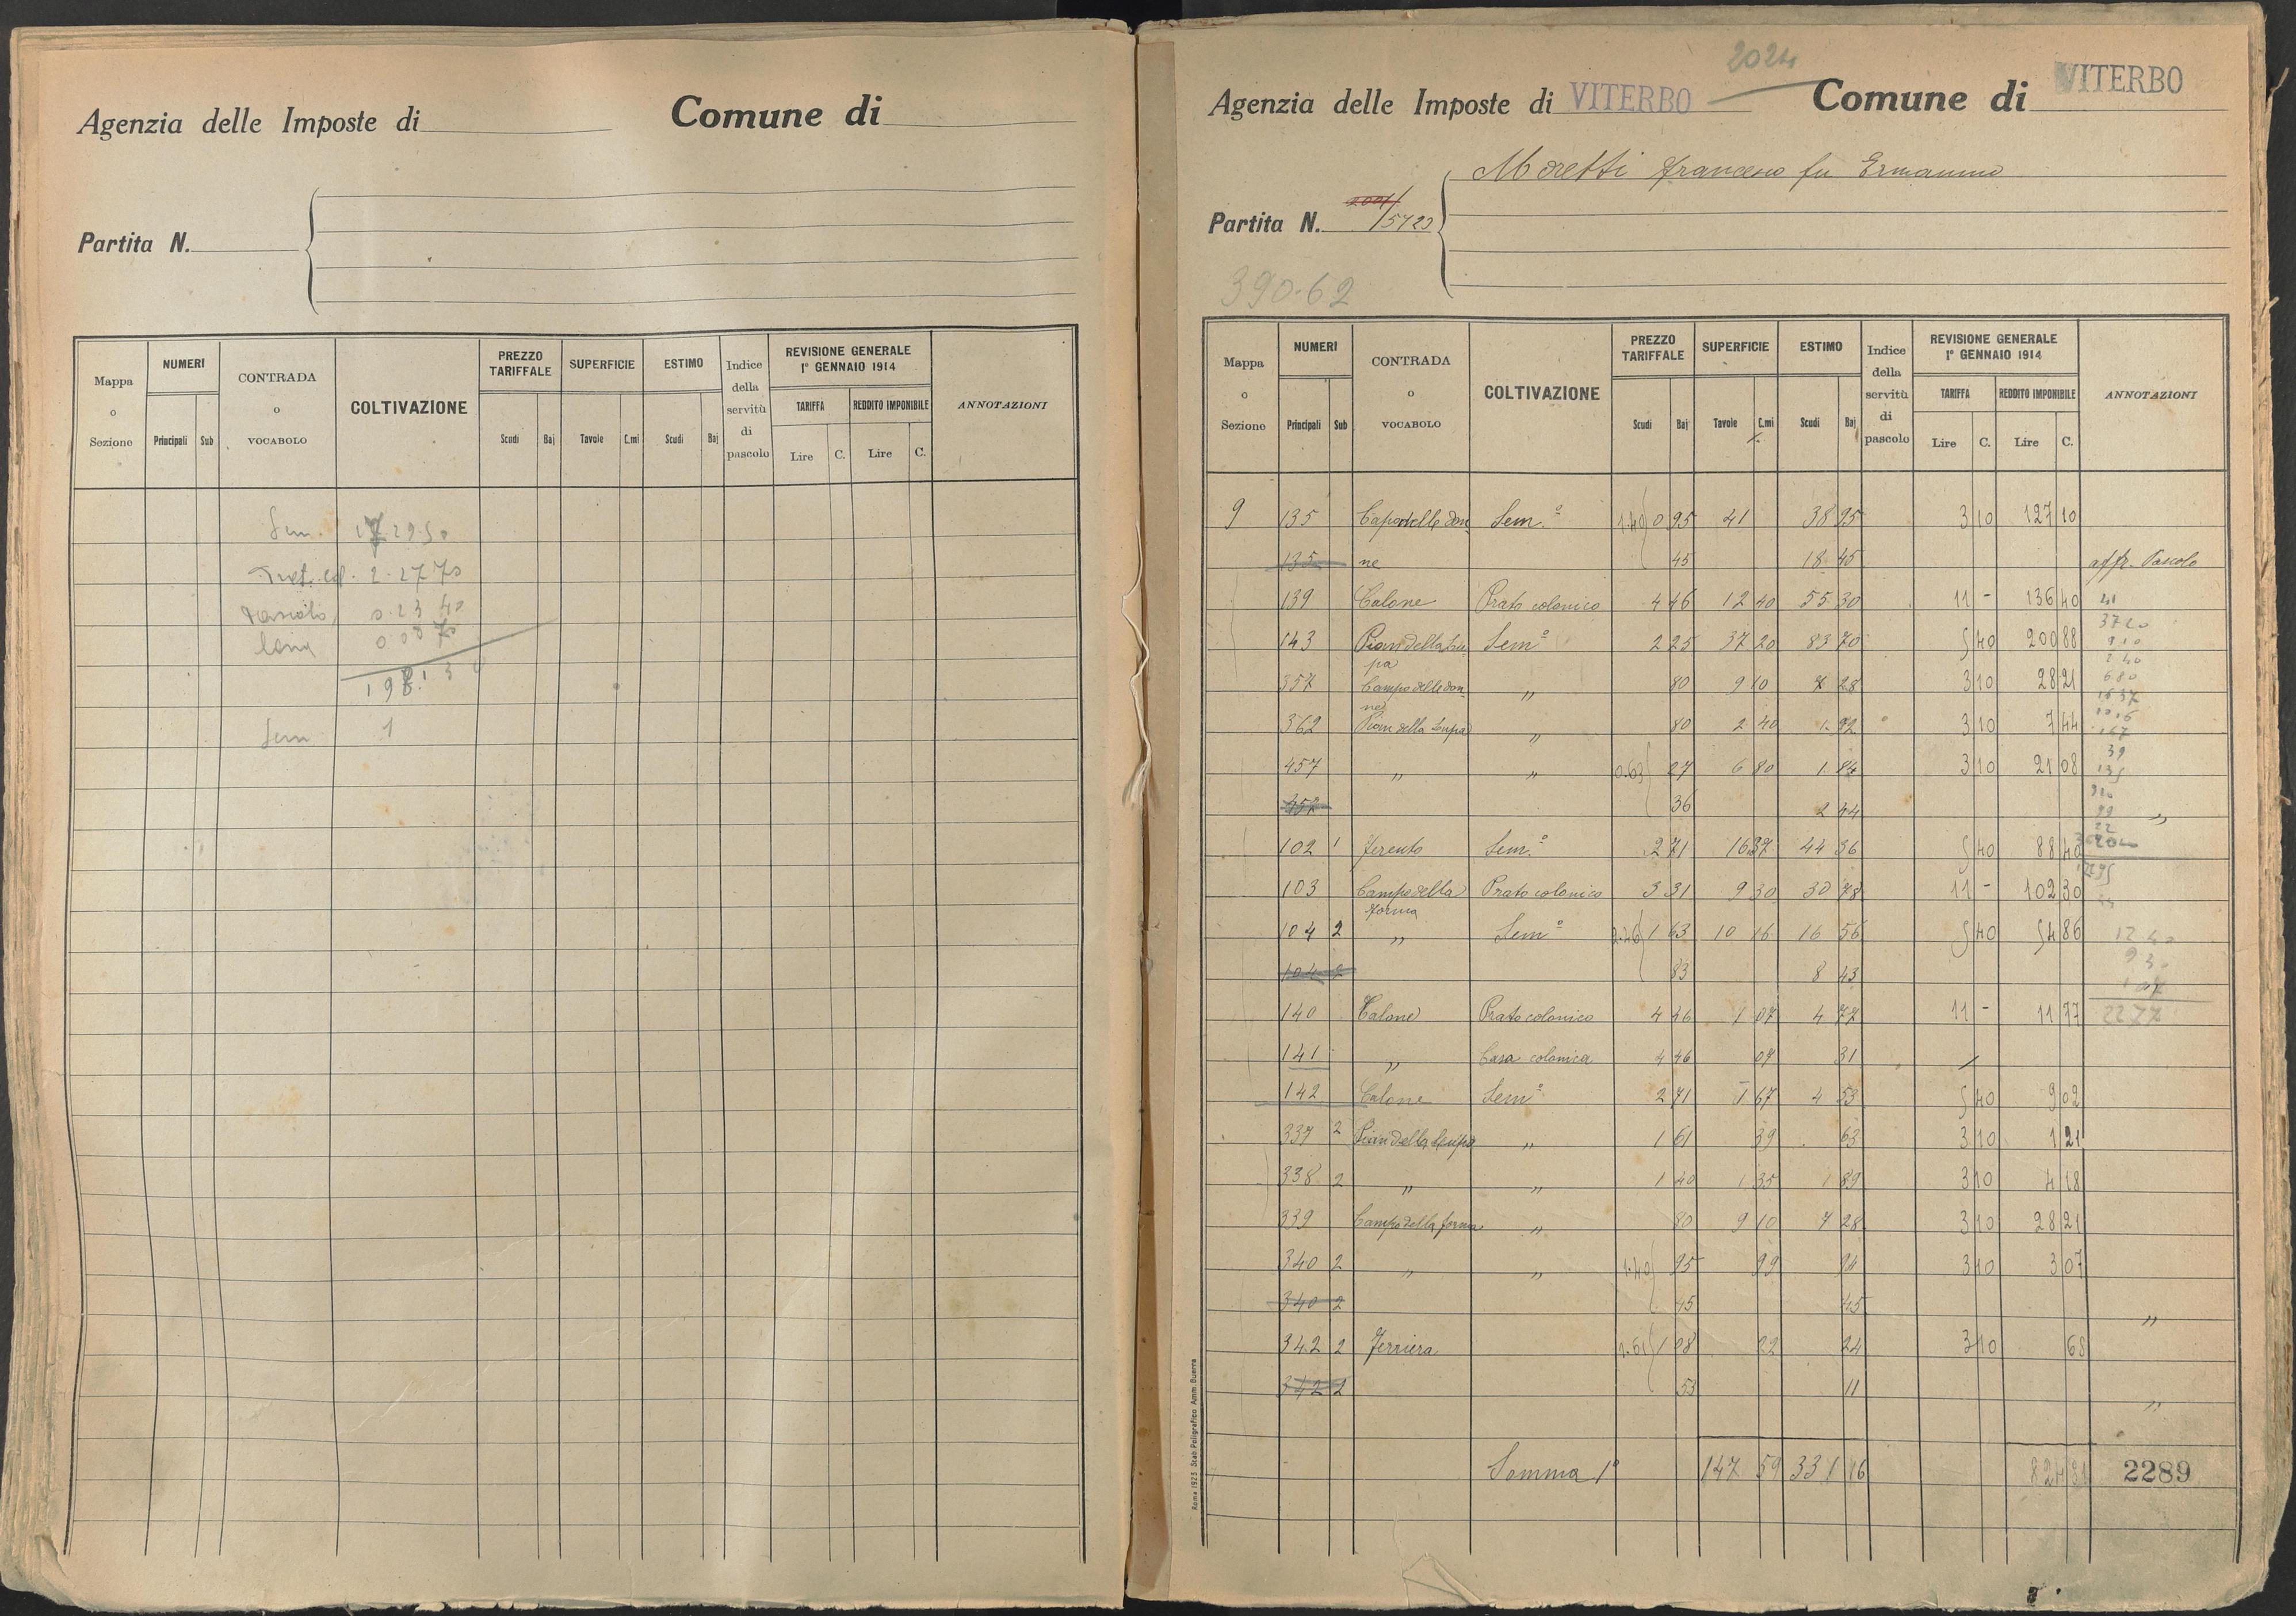 Agenzia delle Imposte di
Comune di
Partita N.
Mappa o Sezione
NUMERI
Principali Sub
CONTRADA o VOCABOLO
COLTIVAZIONE
PREZZO TARIFFALE
Scudi Baj
SUPERFICIE
Tavole C.mi
ESTIMO
Scudi Baj
Indice della servitù di pascolo
REVISIONE GENERALE 1° GENNAIO 1914
TARIFFA
Lire C.
REDDITO IMPONIBILE
Lire C.
ANNOTAZIONI
Sem.
2.27 70
0.23 40
Sem 1
2024
Agenzia delle Imposte di VITERBO Comune di VITERBO
Moretti Francesco fu Ermanno
Partita N. 5723
390.62
Mappa o Sezione
NUMERI
Principali Sub
CONTRADA o VOCABOLO
COLTIVAZIONE
PREZZO TARIFFALE
Scudi Baj
SUPERFICIE
Tavole C.mi
ESTIMO
Scudi Baj
Indice della servitù di pascolo
REVISIONE GENERALE 1° GENNAIO 1914
TARIFFA
Lire C.
REDDITO IMPONIBILE
Lire C.
ANNOTAZIONI
9 135 Sem.º 1.40 0 95 41 38 95 3 10 127 10
135 ne 45 18 45 affr. Pascolo
139 Calone Prato colonico 4 46 12 40 55 30 11 - 136 40
143 Pian della Lupa Sem.º 2 25 37 20 83 70 5 40 200 88
357 Campo delle donne " 80 9 10 7 28 3 10 28 21
362 Pian della Lupa " 80 2 40 1 92 3 10 7 44
457 " " 0.63 27 6 80 1 84 3 10 21 08
457 36 2 44 "
102 1 Ferento Sem.º 2 71 16 37 44 36 5 40 88 40
103 Campo della forma Prato colonico 3 31 9 30 30 78 11 - 102 30
104 2 " Sem.º 2.46 1 63 10 16 16 56 5 40 54 86
104 2 83 8 43
140 Calone Prato colonico 4 46 1 07 4 77 11 - 11 77
141 " Casa colonica 4 46 07 31
142 Calone Sem.º 2 71 1 67 4 53 5 40 9 02
337 2 Pian della Lupa " 1 61 39 63 3 10 1 21
338 2 " " 1 40 1 35 1 89 3 10 4 18
339 Campo della forma " 80 9 10 7 28 3 10 28 21
340 2 " " 1.40 95 99 94 3 10 3 07
340 2 45 45 "
342 2 Ferriera 1.61 1 08 22 24 3 10 68
342 2 53 11 "
Somma 1º 147 59 331 16 2289
12 40
9 30
1 07
22 77
Roma 1923 Stab. Poligrafico Amm. Guerra